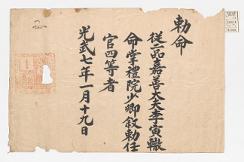 勅命
從一品嘉善大夫李寅轍
命掌禮院少卿敘勅任
官四等者
光武七年一月十九日